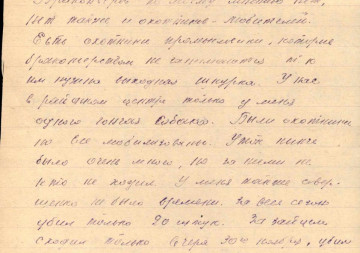 Браконьеров по моему мнению нет,
нет также и охотников-любителей.
Есть охотники промысловики, которые
браконьерством не занимаются т. к.
им нужна выходная шкурка. У нас
в районном центре только у меня
одного гончая собака. Были охотники
но все мобилизованы. Уток нынче
было очень много, но за ними не
кто не ходил. У меня также совер-
шенно не было времени. За весь сезон
убил только 20 штук. За зайцем
сходил только вчера 30го ноября, убил